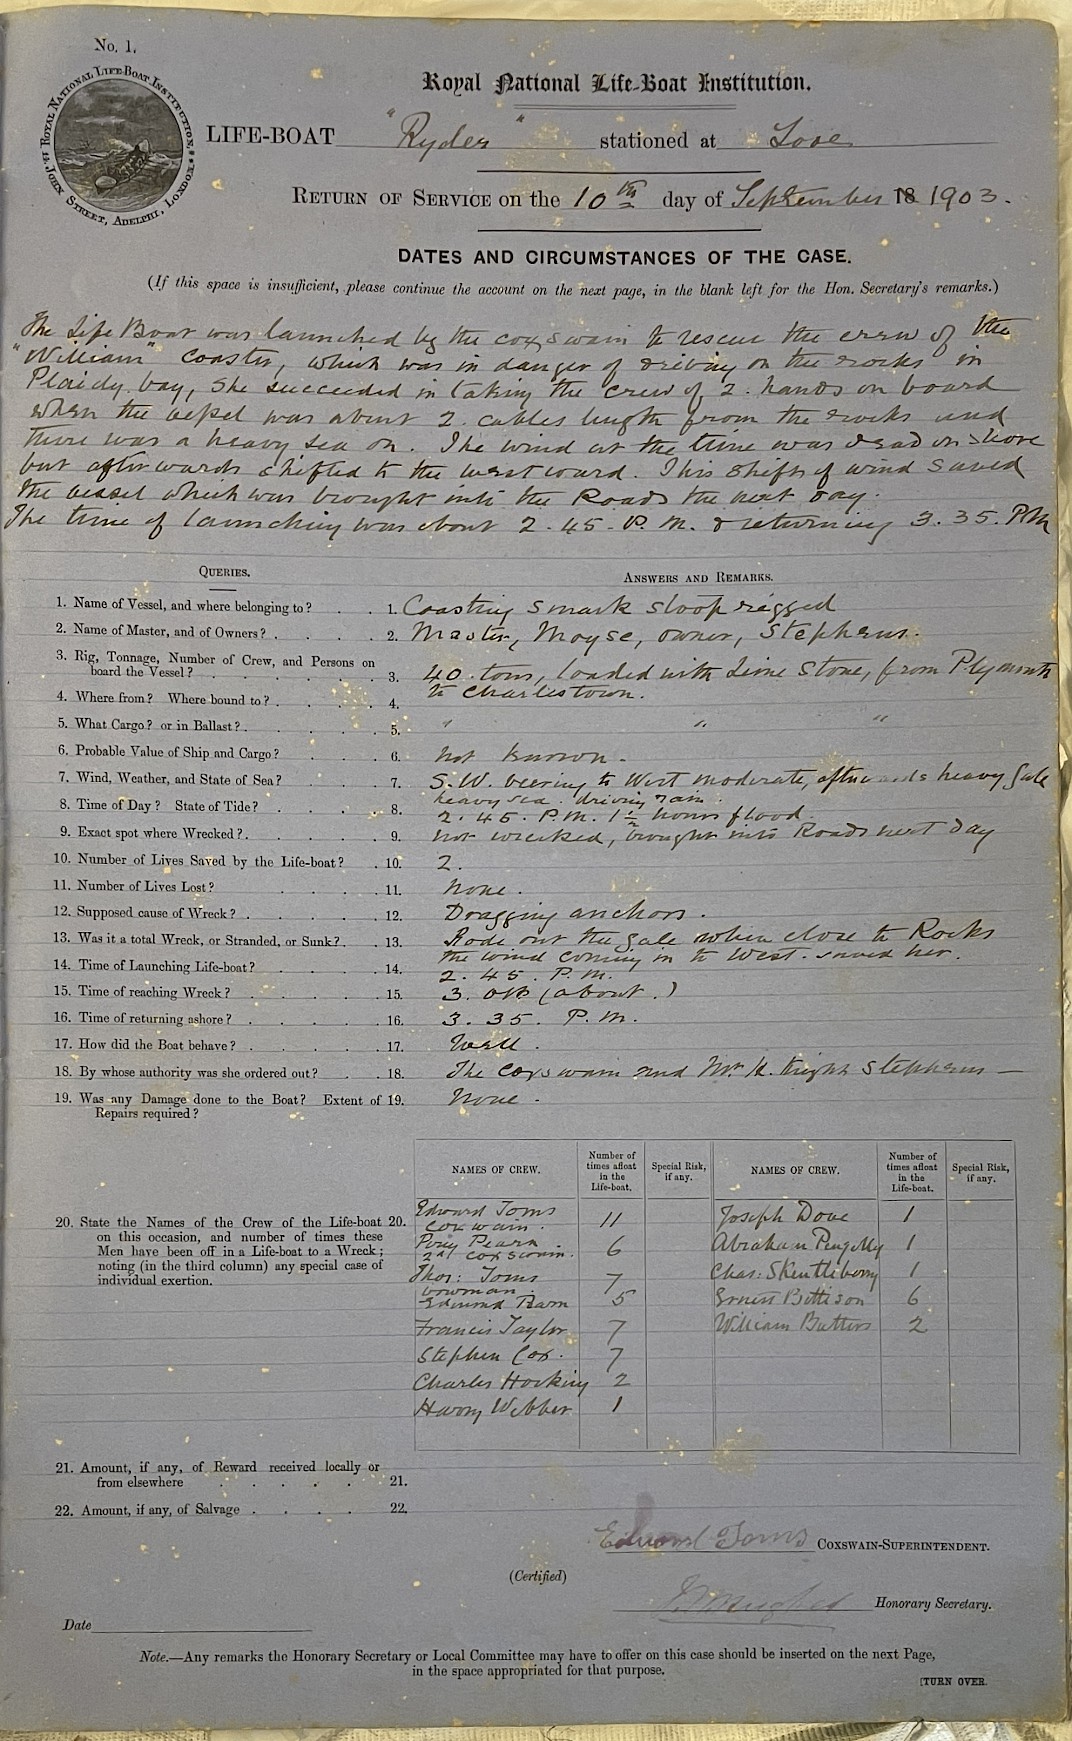 No. 1.
ROYAL NATIONAL LIFE-BOAT INSTITUTION.
14, JOHN STREET, ADELPHI, LONDON.
Royal National Life-Boat Institution.
LIFE-BOAT "Ryder" stationed at Looe
RETURN OF SERVICE on the 10th day of September 18 1903.
DATES AND CIRCUMSTANCES OF THE CASE.
(If this space is insufficient, please continue the account on the next page, in the blank left for the Hon. Secretary's remarks.)
The Life Boat was launched by the coxswain to rescue the crew of the
"William" coaster, which was in danger of driving on the rocks in
Plaidy bay, she succeeded in taking the crew of 2 hands on board
when the vessel was about 2 cables length from the rocks and
there was a heavy sea on. The wind at the time was dead on shore
but afterwards shifted to the westward. This shift of wind saved
the vessel which was brought into the Roads the next day.
The time of launching was about 2.45. P.M. & returning 3.35. PM
QUERIES.
ANSWERS AND REMARKS.
1. Name of Vessel, and where belonging to? 1. Coasting smack sloop rigged
2. Name of Master, and of Owners? 2. Master, Moyse, owner, Stephens.
3. Rig, Tonnage, Number of Crew, and Persons on
board the Vessel? 3. 40 tons, loaded with Lime Stone, from Plymouth
4. Where from? Where bound to? 4. to Charlestown.
5. What Cargo? or in Ballast? 5. " " "
6. Probable Value of Ship and Cargo? 6. Not known.
7. Wind, Weather, and State of Sea? 7. S.W. veering to West moderate, afterwards heavy gale
heavy sea. driving rain.
8. Time of Day? State of Tide? 8. 2.45. P.M. 1½ hours flood
9. Exact spot where Wrecked? 9. Not wrecked, brought into Roads next day
10. Number of Lives Saved by the Life-boat? 10. 2.
11. Number of Lives Lost? 11. None.
12. Supposed cause of Wreck? 12. Dragging anchors.
13. Was it a total Wreck, or Stranded, or Sunk? 13. Rode out the gale when close to Rocks
the wind coming in to West saved her.
14. Time of Launching Life-boat? 14. 2.45. P.M.
15. Time of reaching Wreck? 15. 3. (about.)
16. Time of returning ashore? 16. 3.35. P.M.
17. How did the Boat behave? 17. Well.
18. By whose authority was she ordered out? 18. The Coxswain and Mr Stephens
19. Was any Damage done to the Boat? Extent of 19. None.
Repairs required?
NAMES OF CREW. Number of times afloat in the Life-boat. Special Risk, if any. NAMES OF CREW. Number of times afloat in the Life-boat. Special Risk, if any.
20. State the Names of the Crew of the Life-boat 20.
on this occasion, and number of times these
Men have been off in a Life-boat to a Wreck;
noting (in the third column) any special case of
individual exertion.
Edward Toms 11 Joseph Dove 1
coxswain.
Pearn 6 Abraham Pengelly 1
2nd coxswain.
Thos: Toms 7 Chas: Skentlebery 1
bowman.
Edmund Pearn 5 Ernest Bettison 6
Francis Taylor 7 William Butters 2
Stephen Cox. 7
Charles Hocking 2
Harry Webber 1
21. Amount, if any, of Reward received locally or
from elsewhere 21.
22. Amount, if any, of Salvage 22.
Edward Toms COXSWAIN-SUPERINTENDENT.
(Certified)
Honorary Secretary.
Date
Note.—Any remarks the Honorary Secretary or Local Committee may have to offer on this case should be inserted on the next Page,
in the space appropriated for that purpose.
[TURN OVER.